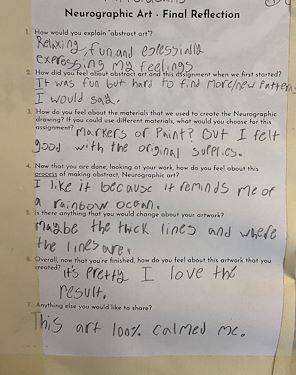 Neurographic Art - Final Reflection
1. How would you explain "abstract art"?
Relaxing, fun, and espessially
expressing my feelings
2. How did you feel about abstract art and this assignment when we first started?
It was fun but hard to find more/new patterns
I would say.
3. How do you feel about the materials that we used to create the Neurographic
drawing? If you could use different materials, what would you choose for this
assignment? Markers or Paint? But I felt
good with the original supplies.
4. Now that you are done, looking at your work, how do you feel about this
process of making abstract, Neurographic art?
I like it because it reminds me of
a rainbow ocean.
5. Is there anything that you would change about your artwork?
Maybe the thick lines and where
the lines are.
6. Overall, now that you're finished, how do you feel about this artwork that you
created? It's pretty I love the
result.
7. Anything else you would like to share?
This art 100% calmed me.